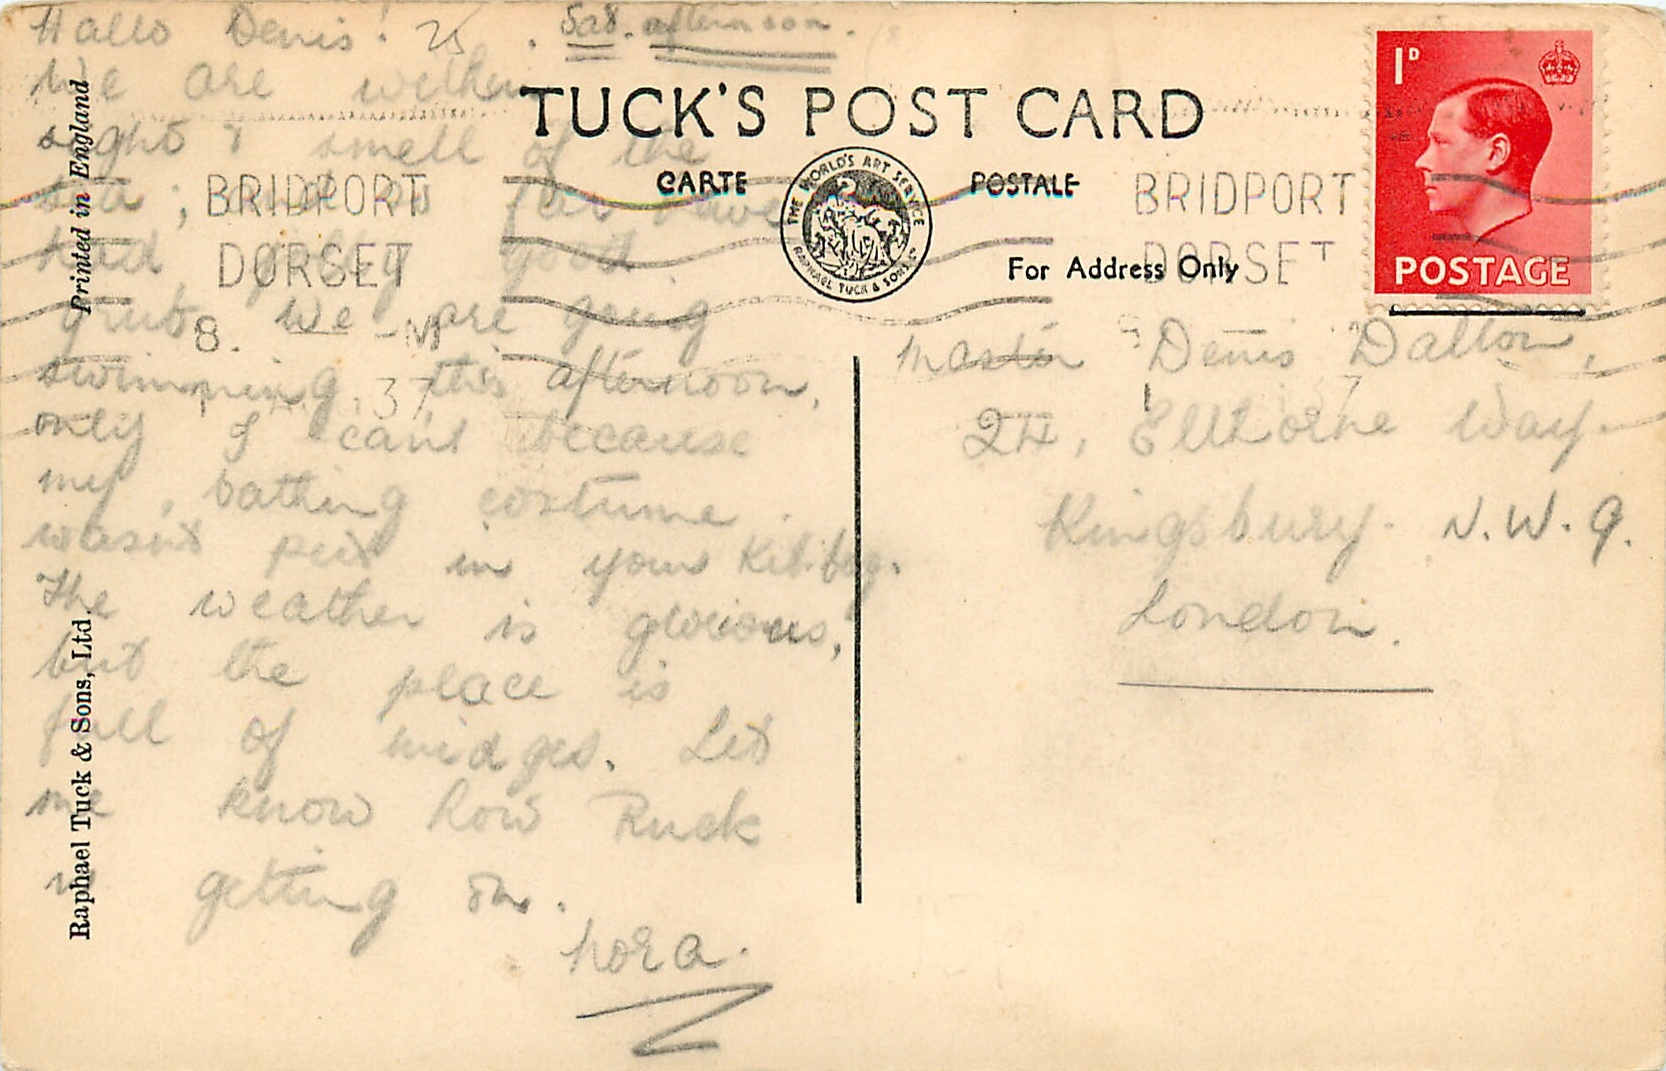 Sat. afternoon.
Hallo Denis!
We are within
sight & smell of the
sea, so far have
had good
grub. We are going
swimming this afternoon,
only I can't because
my bathing costume
wasn't put in your Kit-bag.
The weather is glorious,
but the place is
full of midges. Let
me know how Ruck
is getting on.
Nora.
Printed in England
Raphael Tuck & Sons, Ltd.
TUCK'S POST CARD
CARTE POSTALE
THE WORLD'S ART SERVICE
RAPHAEL TUCK & SONS LD
For Address Only
BRIDPORT
DORSET
BRIDPORT
DORSET
1D
POSTAGE
Master Denis Dalton,
24, Ellthorne Way.
Kingsbury. N.W.9.
London.